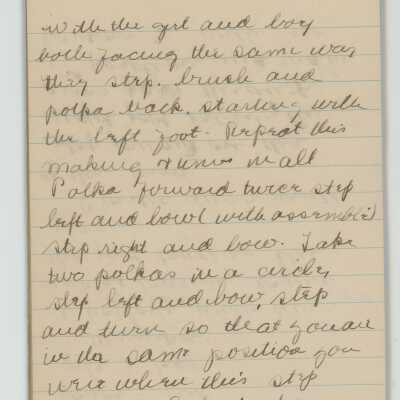 with the girl and boy
both facing the same way
they step, brush and
polka back, starting with
the left foot. Repeat this
making 4 times in all
Polka forward twice step
left and bow (with assemblé)
step right and bow. Take
two polkas in a circle,
step left and bow, step
and turn so that you are
in the same position you
were when this step